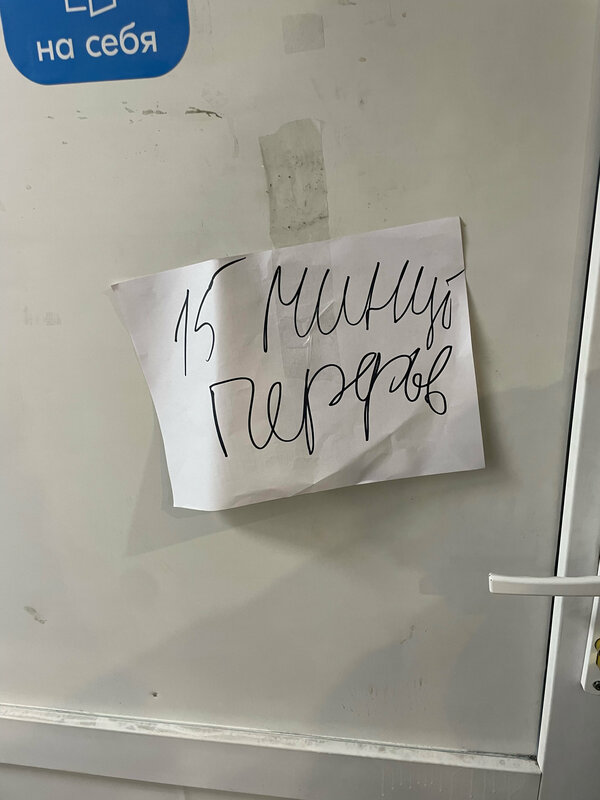 на себя
15 минут
перерыв